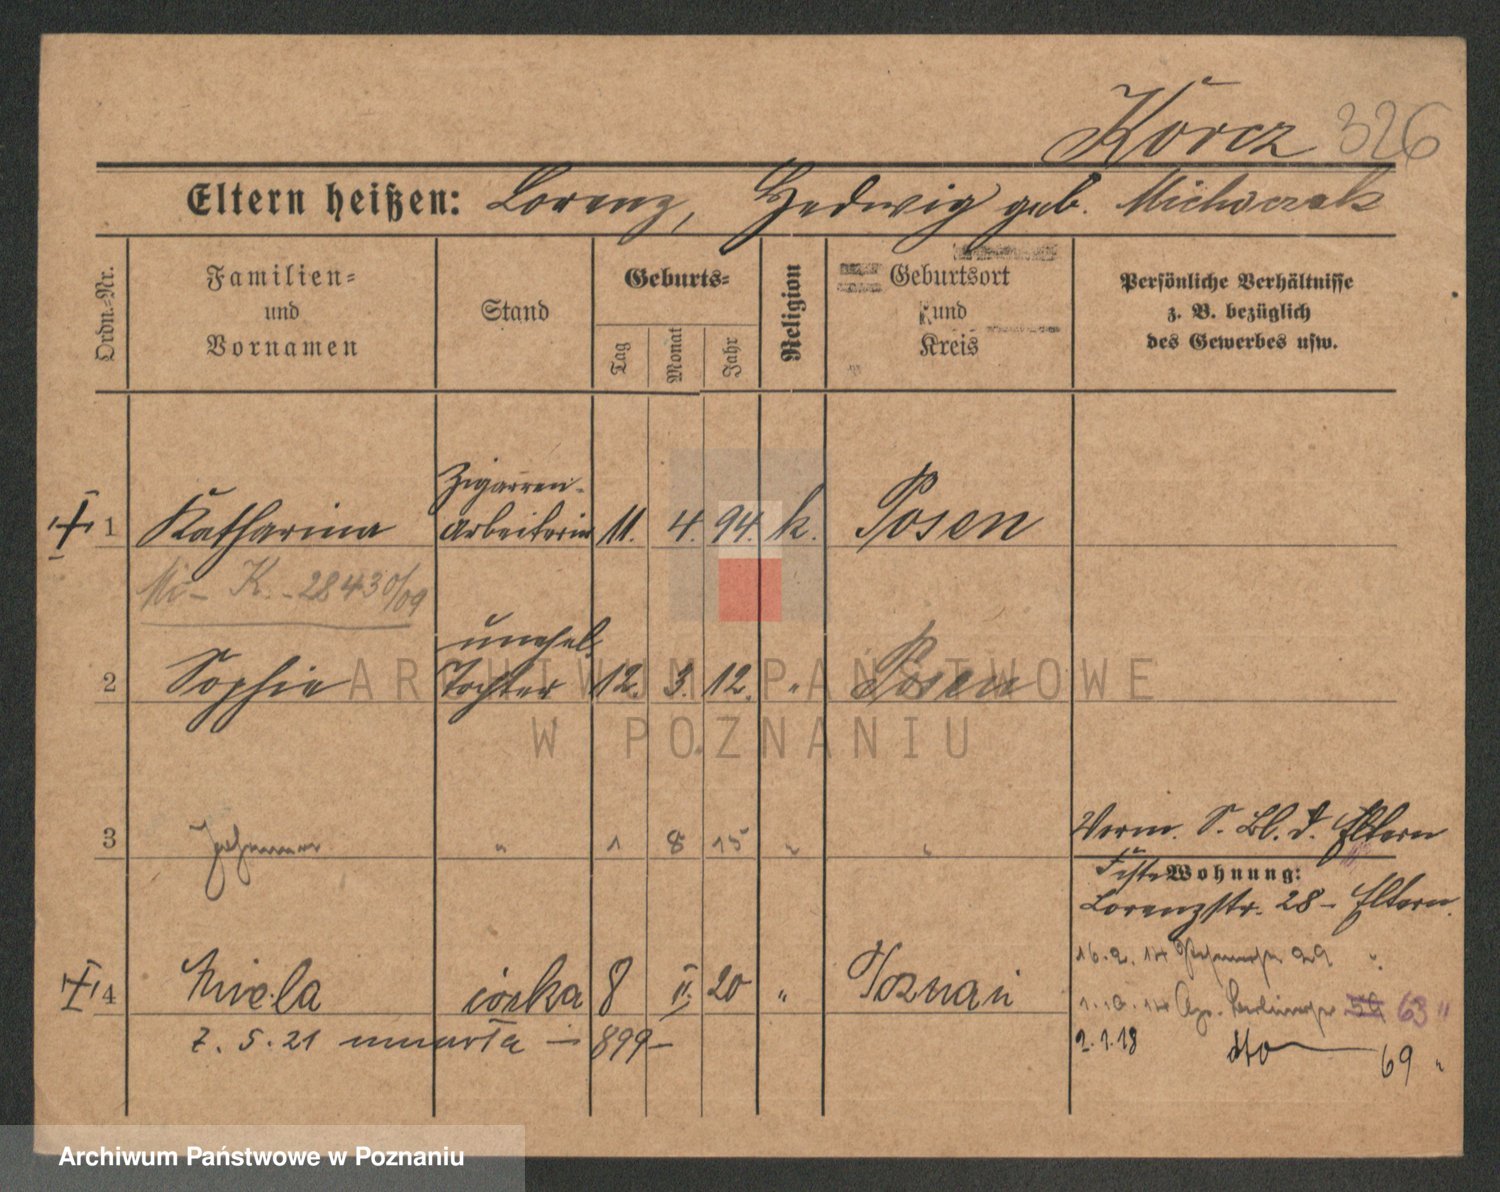 Korcz 326
Eltern heißen: Lorenz, Hedwig geb. Michaczak
Ordn.-Nr.
Familien-
und
Vornamen
Stand
Geburts-
Tag
Monat
Jahr
Religion
Geburtsort
und
Kreis
Persönliche Verhältnisse
z. B. bezüglich
des Gewerbes usw.
Zigarren-
1 Katharina arbeiterin 11. 4. 94. k. Posen
K. 28430/09
unehel.
2 Sophie Tochter 12. 3. 12. " Posen
3 " 1 8 15 " "
Verm. S. Bl. d. Eltern
Wohnung:
Lorenzstr. 28 - Eltern.
16. 2. 14 29 "
4 córka 8 II. 20 " Poznań
1. 10. 14 63 "
7. 5. 21 umarła - 899 -
2. 1. 18 dto 69 "
ARCHIWUM PAŃSTWOWE
W POZNANIU
Archiwum Państwowe w Poznaniu